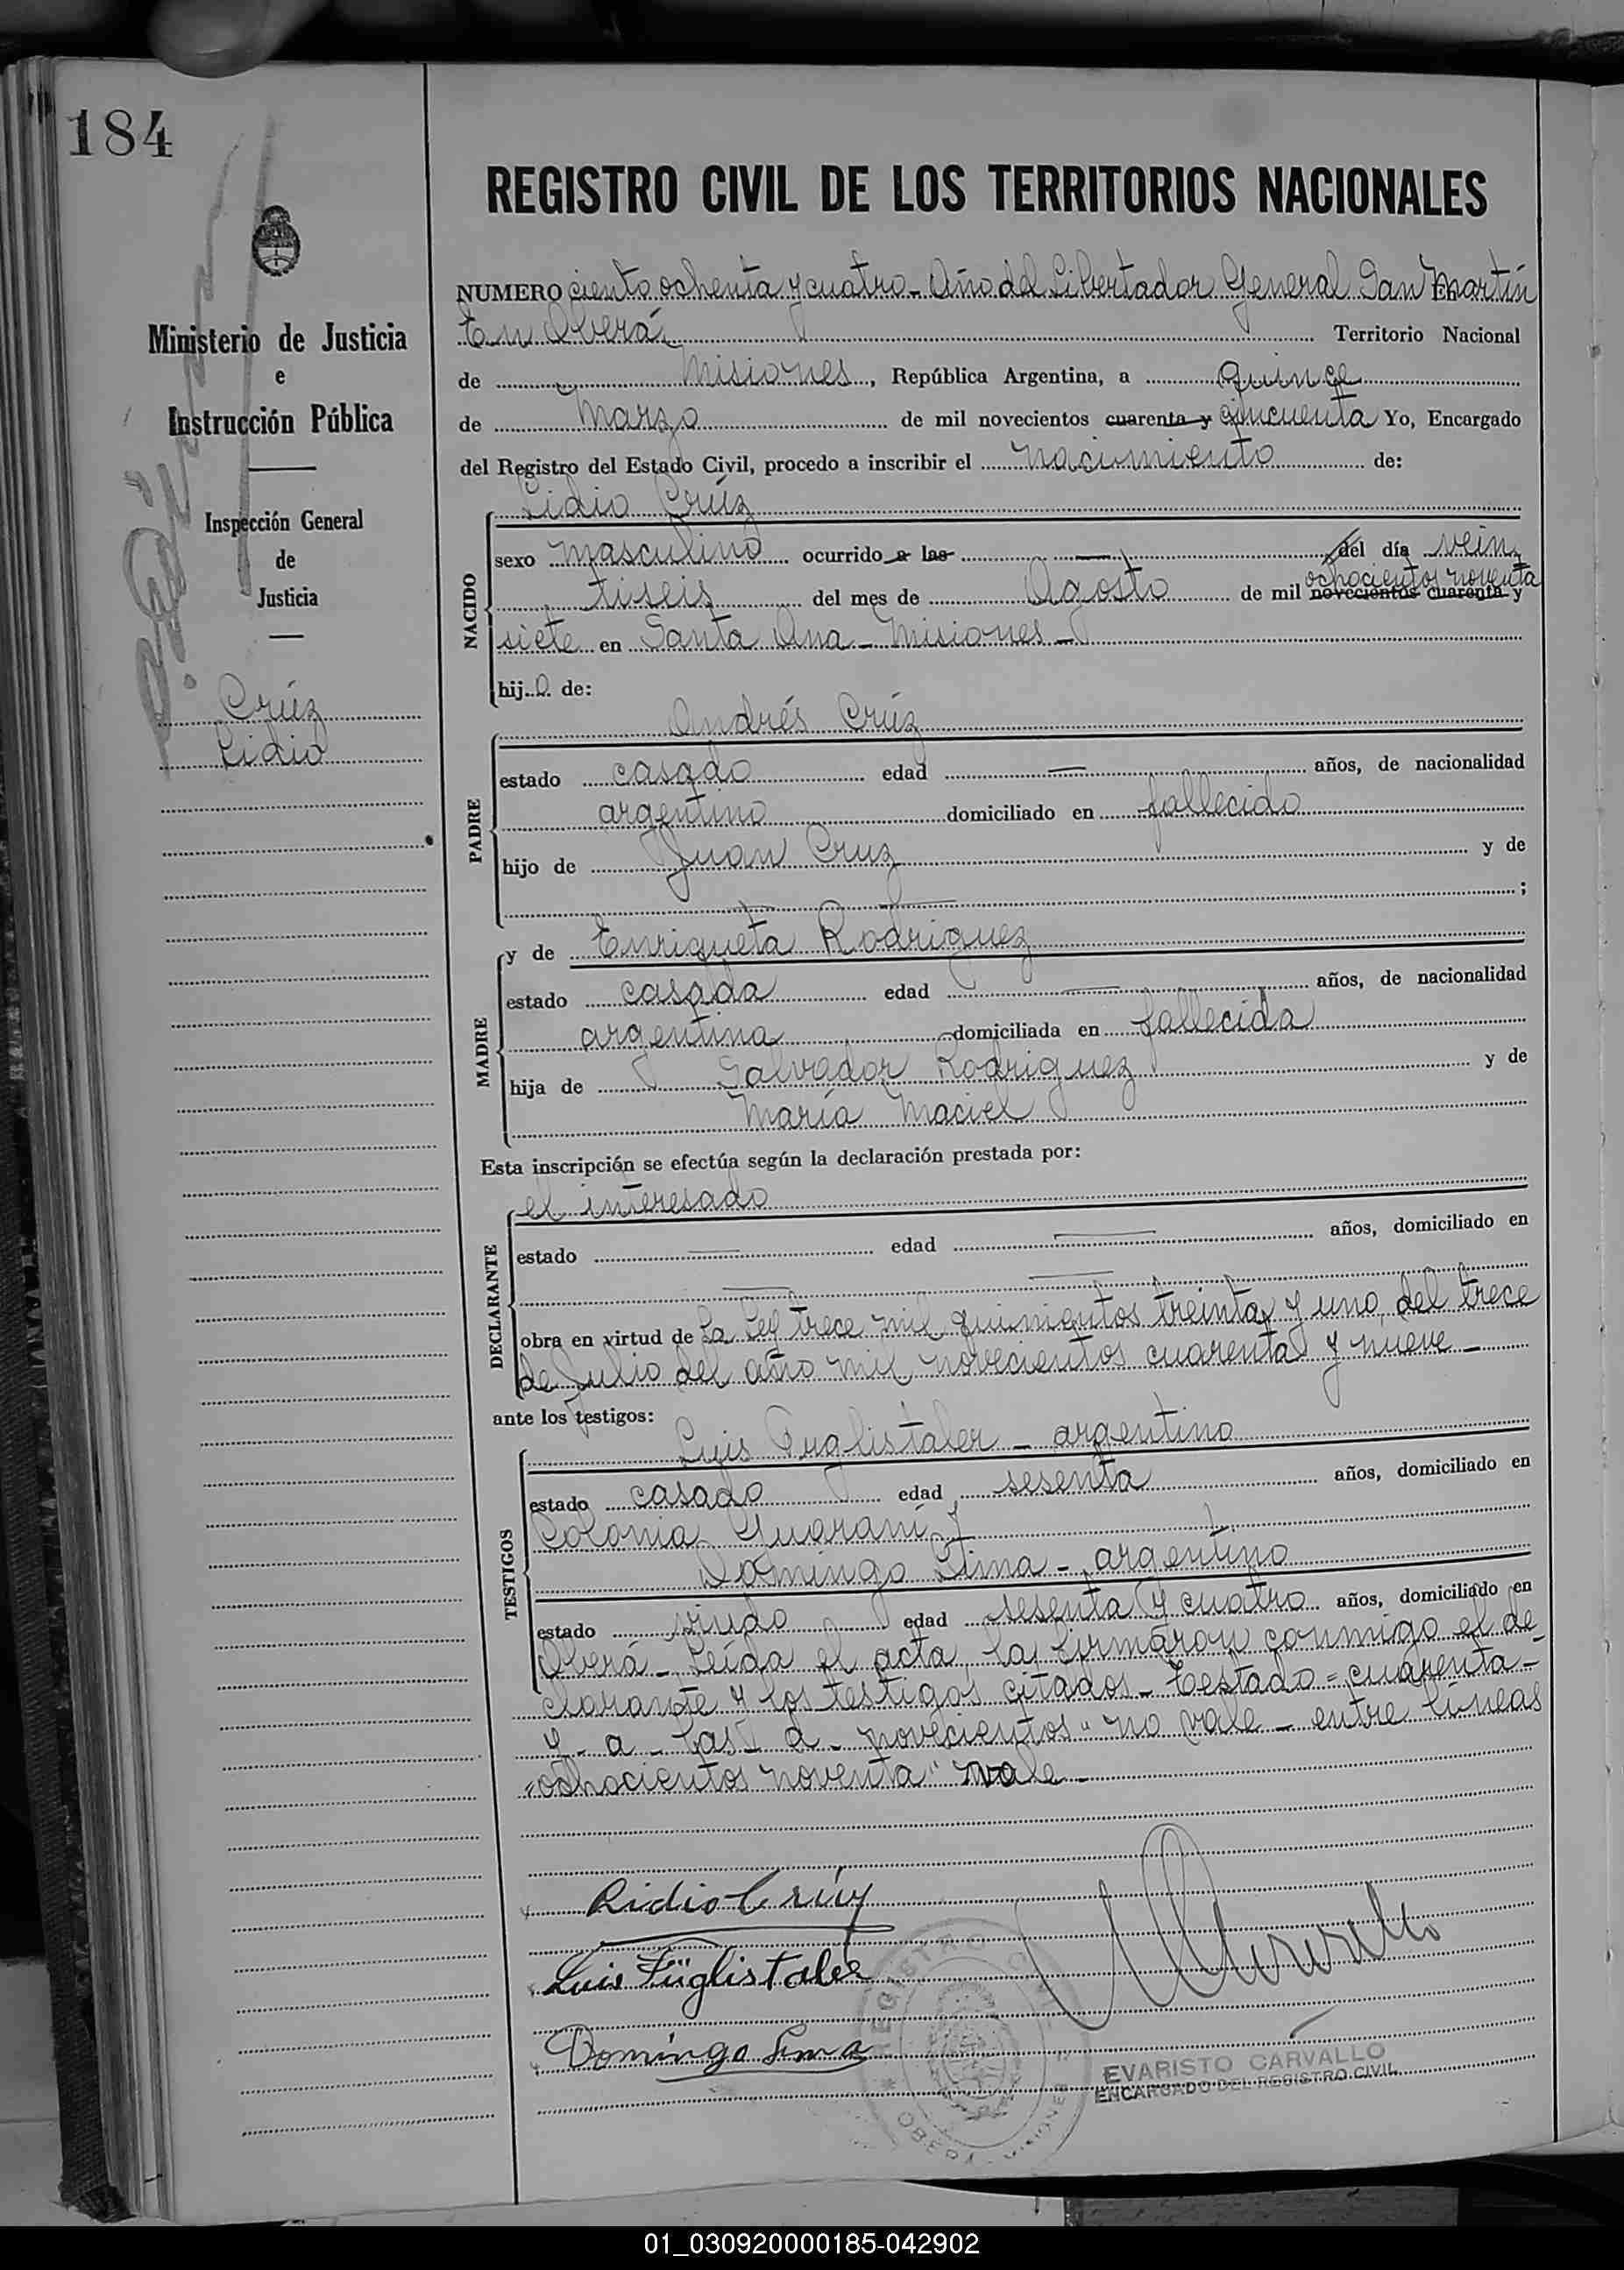 184
REGISTRO CIVIL DE LOS TERRITORIOS NACIONALES
Ministerio de Justicia
e
Instrucción Pública
Inspección General
de
Justicia
Crúz
Lidio
NUMERO ciento ochenta y cuatro - Año del Libertador General San Martín
En Oberá Territorio Nacional
de Misiones, República Argentina, a quince
de Marzo de mil novecientos cuarenta y cincuenta Yo, Encargado
del Registro del Estado Civil, procedo a inscribir el nacimiento de:
NACIDO
Lidio Crúz
sexo masculino ocurrido a las — del día vein
ochocientos noventa
tiseis del mes de Agosto de mil novecientos cuarenta y
siete en Santa Ana - Misiones -
hijo de:
PADRE
Andrés Crúz
estado casado edad — años, de nacionalidad
argentino domiciliado en fallecido
hijo de Juan Cruz y de
— — ;
MADRE
y de Enriqueta Rodriguez
estado casada edad — años, de nacionalidad
argentina domiciliada en fallecida
hija de Salvador Rodriguez y de
María Maciel
Esta inscripción se efectúa según la declaración prestada por:
DECLARANTE
el interesado
estado — edad — años, domiciliado en
— —
obra en virtud de La Ley trece mil quinientos treinta y uno del trece
de Julio del año mil novecientos cuarenta y nueve -
ante los testigos:
TESTIGOS
Luis Fuglistaler - argentino
estado casado edad sesenta años, domiciliado en
Colonia Guaraní y
Domingo Lima - argentino
estado viudo edad sesenta y cuatro años, domiciliado en
Oberá - Leída el acta, la firmáron conmigo el de-
clarante y los testigos citados - Testado = cuarenta -
y - a - las - d - novecientos" no vale - entre líneas
"ochocientos noventa" vale -
Lidio Crúz
Luis Füglistaler
Domingo Lima
REGISTRO CIVIL
OBERA - MISIONES
EVARISTO CARVALLO
ENCARGADO DEL REGISTRO CIVIL
01_030920000185-042902